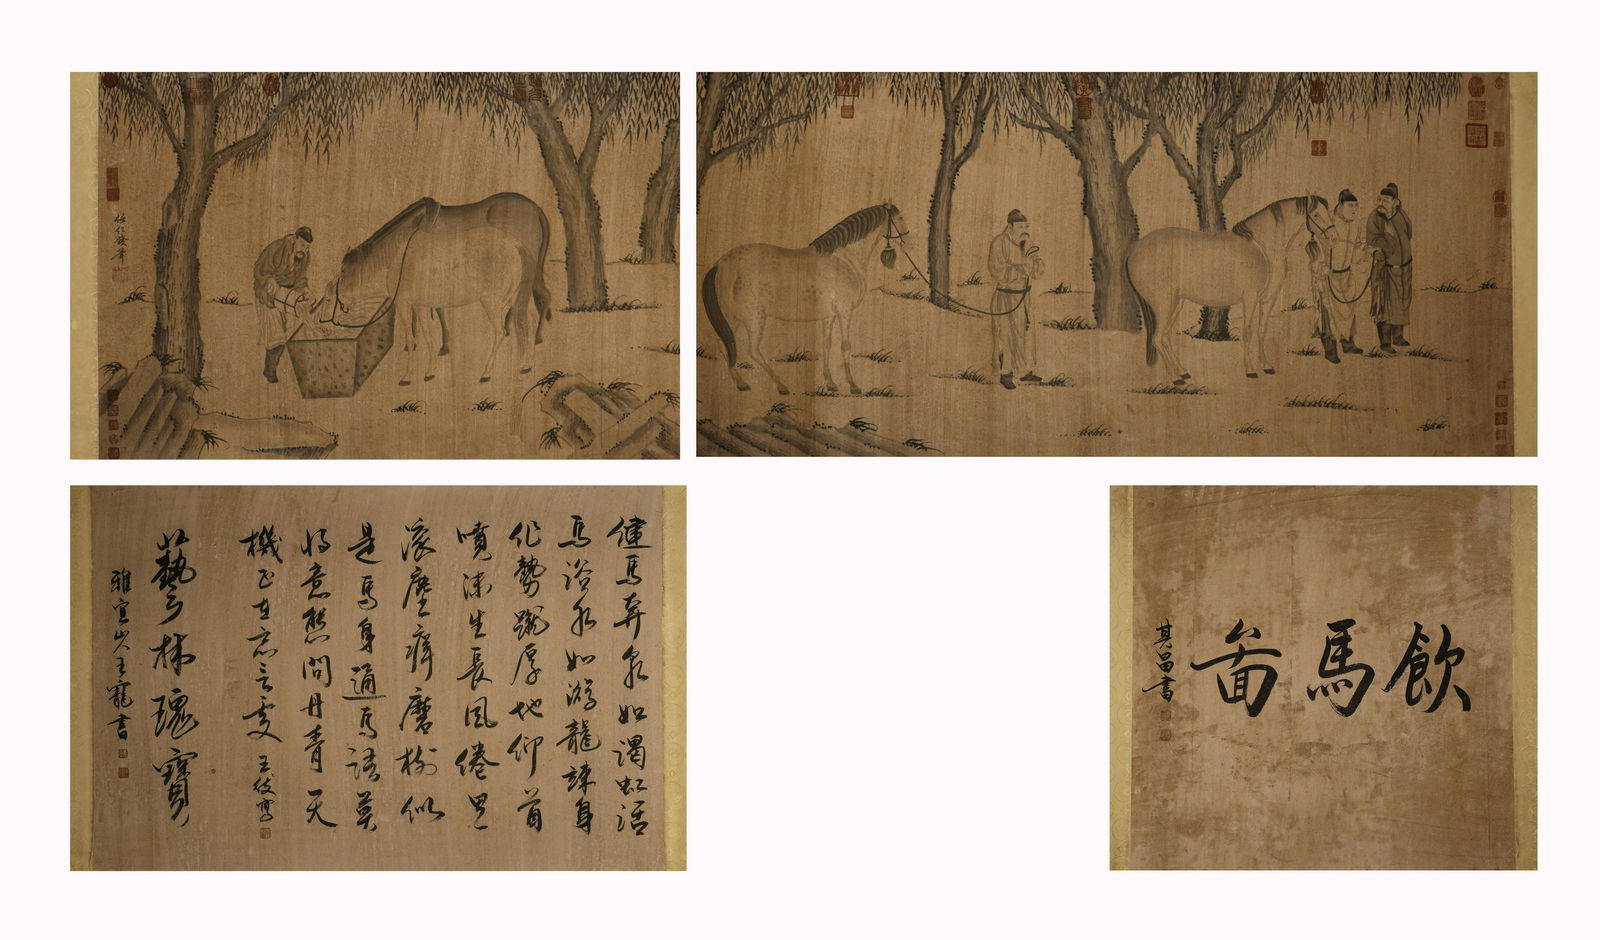 飲馬圖
其昌書
任仁發筆
健馬奔泉如渴虹活
馬浴水如游龍竦身
作勢蹴厚地仰首
噴沫生長風倦思
滾塵痒磨樹似
是馬身通馬語莫
將意態問丹青天
機正在忘言處
藝林瑰寶
雅宜山人王寵書